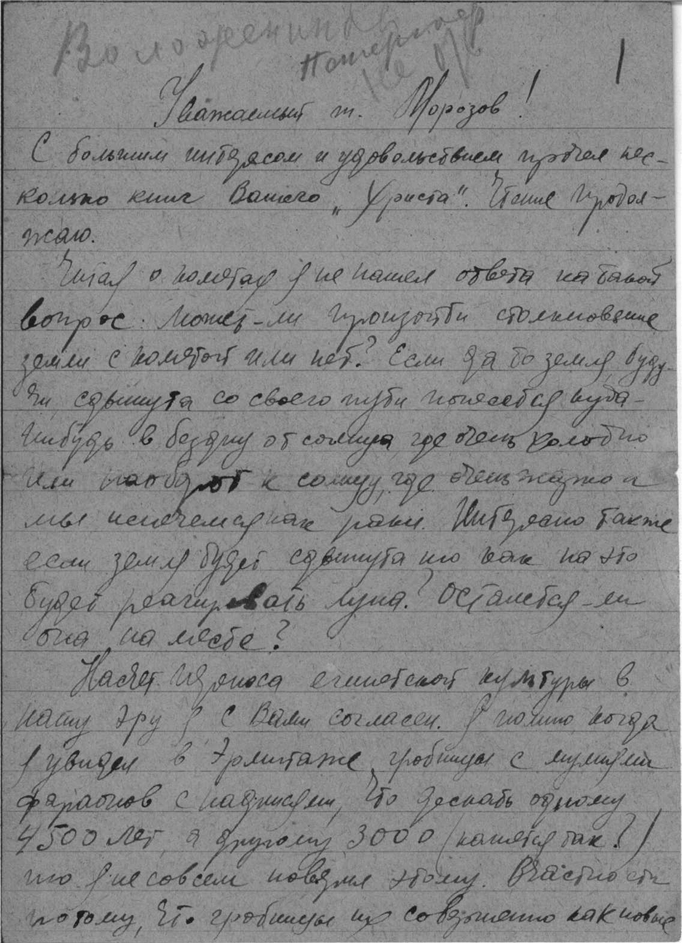 Воложенинов
1
Уважаемый т. Морозов!
С большим интересом и удовольствием прочел нес-
колько книг Вашего „Христа". Чтение продол-
жаю.
Читая о кометах я не нашел ответа на такой
вопрос. Может-ли произойти столкновение
земли с кометой или нет? Если да то земля, буду-
чи, сдвинута со своего пути понесется куда-
нибудь в бездну от солнца, где очень холодно
или наоборот к солнцу, где очень жарко и
мы испечемся как раки. Интересно также
если земля будет сдвинута то как на это
будет реагировать луна? Останется-ли
она на месте?
Насчет переноса египетской культуры в
нашу эру я с Вами согласен. Я помню когда
я увидел в Эрмитаже гробницы с мумиями
фараонов с надписями, что дескать одному
4500 лет, а другому 3000 (кажется так?)
то я не совсем поверил этому. В частности
потому, что гробницы их совершенно как новые